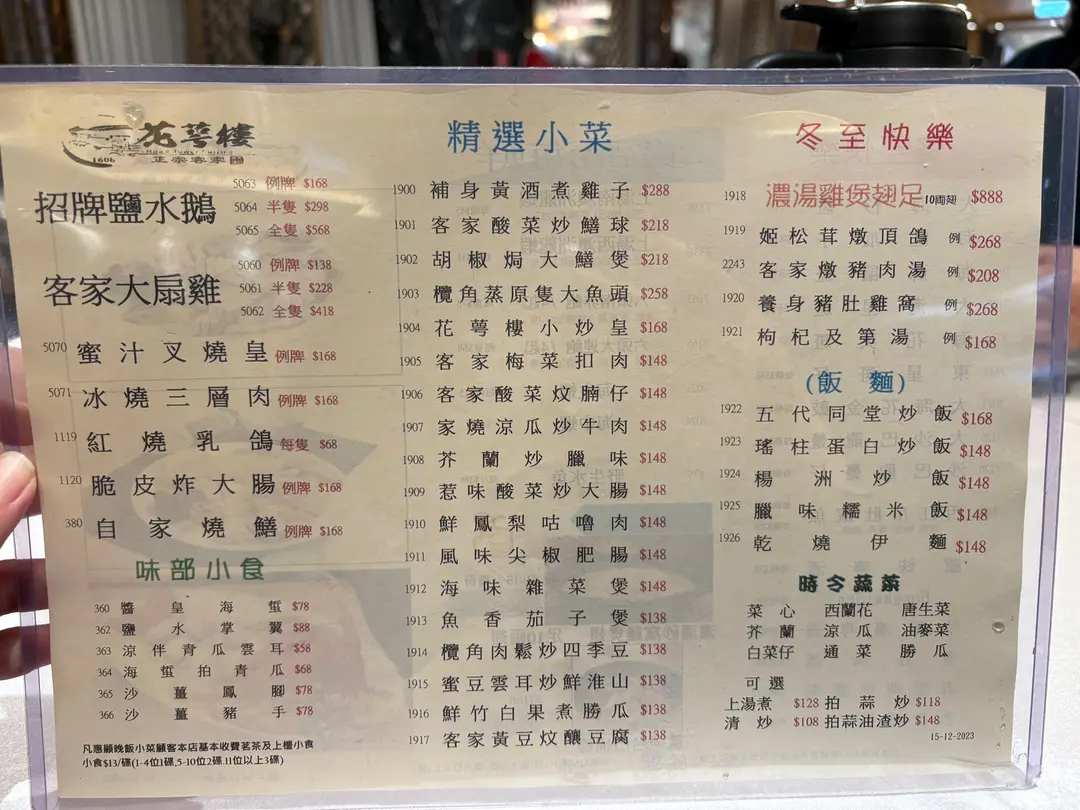 花萼樓
正宗客家菜
1606
招牌鹽水鵝
5063 例牌 $168
5064 半隻 $298
5065 全隻 $568
客家大扇雞
5060 例牌 $138
5061 半隻 $228
5062 全隻 $418
5070 蜜汁叉燒皇 例牌 $168
5071 冰燒三層肉 例牌 $168
1119 紅燒乳鴿 每隻 $68
1120 脆皮炸大腸 例牌 $168
380 自家燒鱔 例牌 $168
味部小食
360 醬皇海蜇 $78
362 鹽水掌翼 $88
363 涼伴青瓜雲耳 $58
364 海蜇拍青瓜 $68
365 沙薑鳳腳 $78
366 沙薑豬手 $78
凡惠顧晚飯小菜顧客本店基本收費茗茶及上檯小食
小食$13/碟(1-4位1碟,5-10位2碟.11位以上3碟)
精選小菜
1900 補身黃酒煮雞子 $288
1901 客家酸菜炒鱔球 $218
1902 胡椒焗大鱔煲 $218
1903 欖角蒸原隻大魚頭 $258
1904 花萼樓小炒皇 $168
1905 客家梅菜扣肉 $148
1906 客家酸菜炆腩仔 $148
1907 家燒涼瓜炒牛肉 $148
1908 芥蘭炒臘味 $148
1909 惹味酸菜炒大腸 $148
1910 鮮鳳梨咕嚕肉 $148
1911 風味尖椒肥腸 $148
1912 海味雜菜煲 $148
1913 魚香茄子煲 $138
1914 欖角肉鬆炒四季豆 $138
1915 蜜豆雲耳炒鮮淮山 $138
1916 鮮竹白果煮勝瓜 $138
1917 客家黃豆炆釀豆腐 $138
冬至快樂
1918 濃湯雞煲翅足 10両翅 $888
1919 姬松茸燉頂鴿 例 $268
2243 客家燉豬肉湯 例 $208
1920 養身豬肚雞窩 例 $268
1921 枸杞及第湯 例 $168
(飯 麵)
1922 五代同堂炒飯 $168
1923 瑤柱蛋白炒飯 $148
1924 楊洲炒飯 $148
1925 臘味糯米飯 $148
1926 乾燒伊麵 $148
時令蔬菜
菜心 西蘭花 唐生菜
芥蘭 涼瓜 油麥菜
白菜仔 通菜 勝瓜
可選
上湯煮 $128 拍蒜炒 $118
清炒 $108 拍蒜油渣炒 $148
15-12-2023